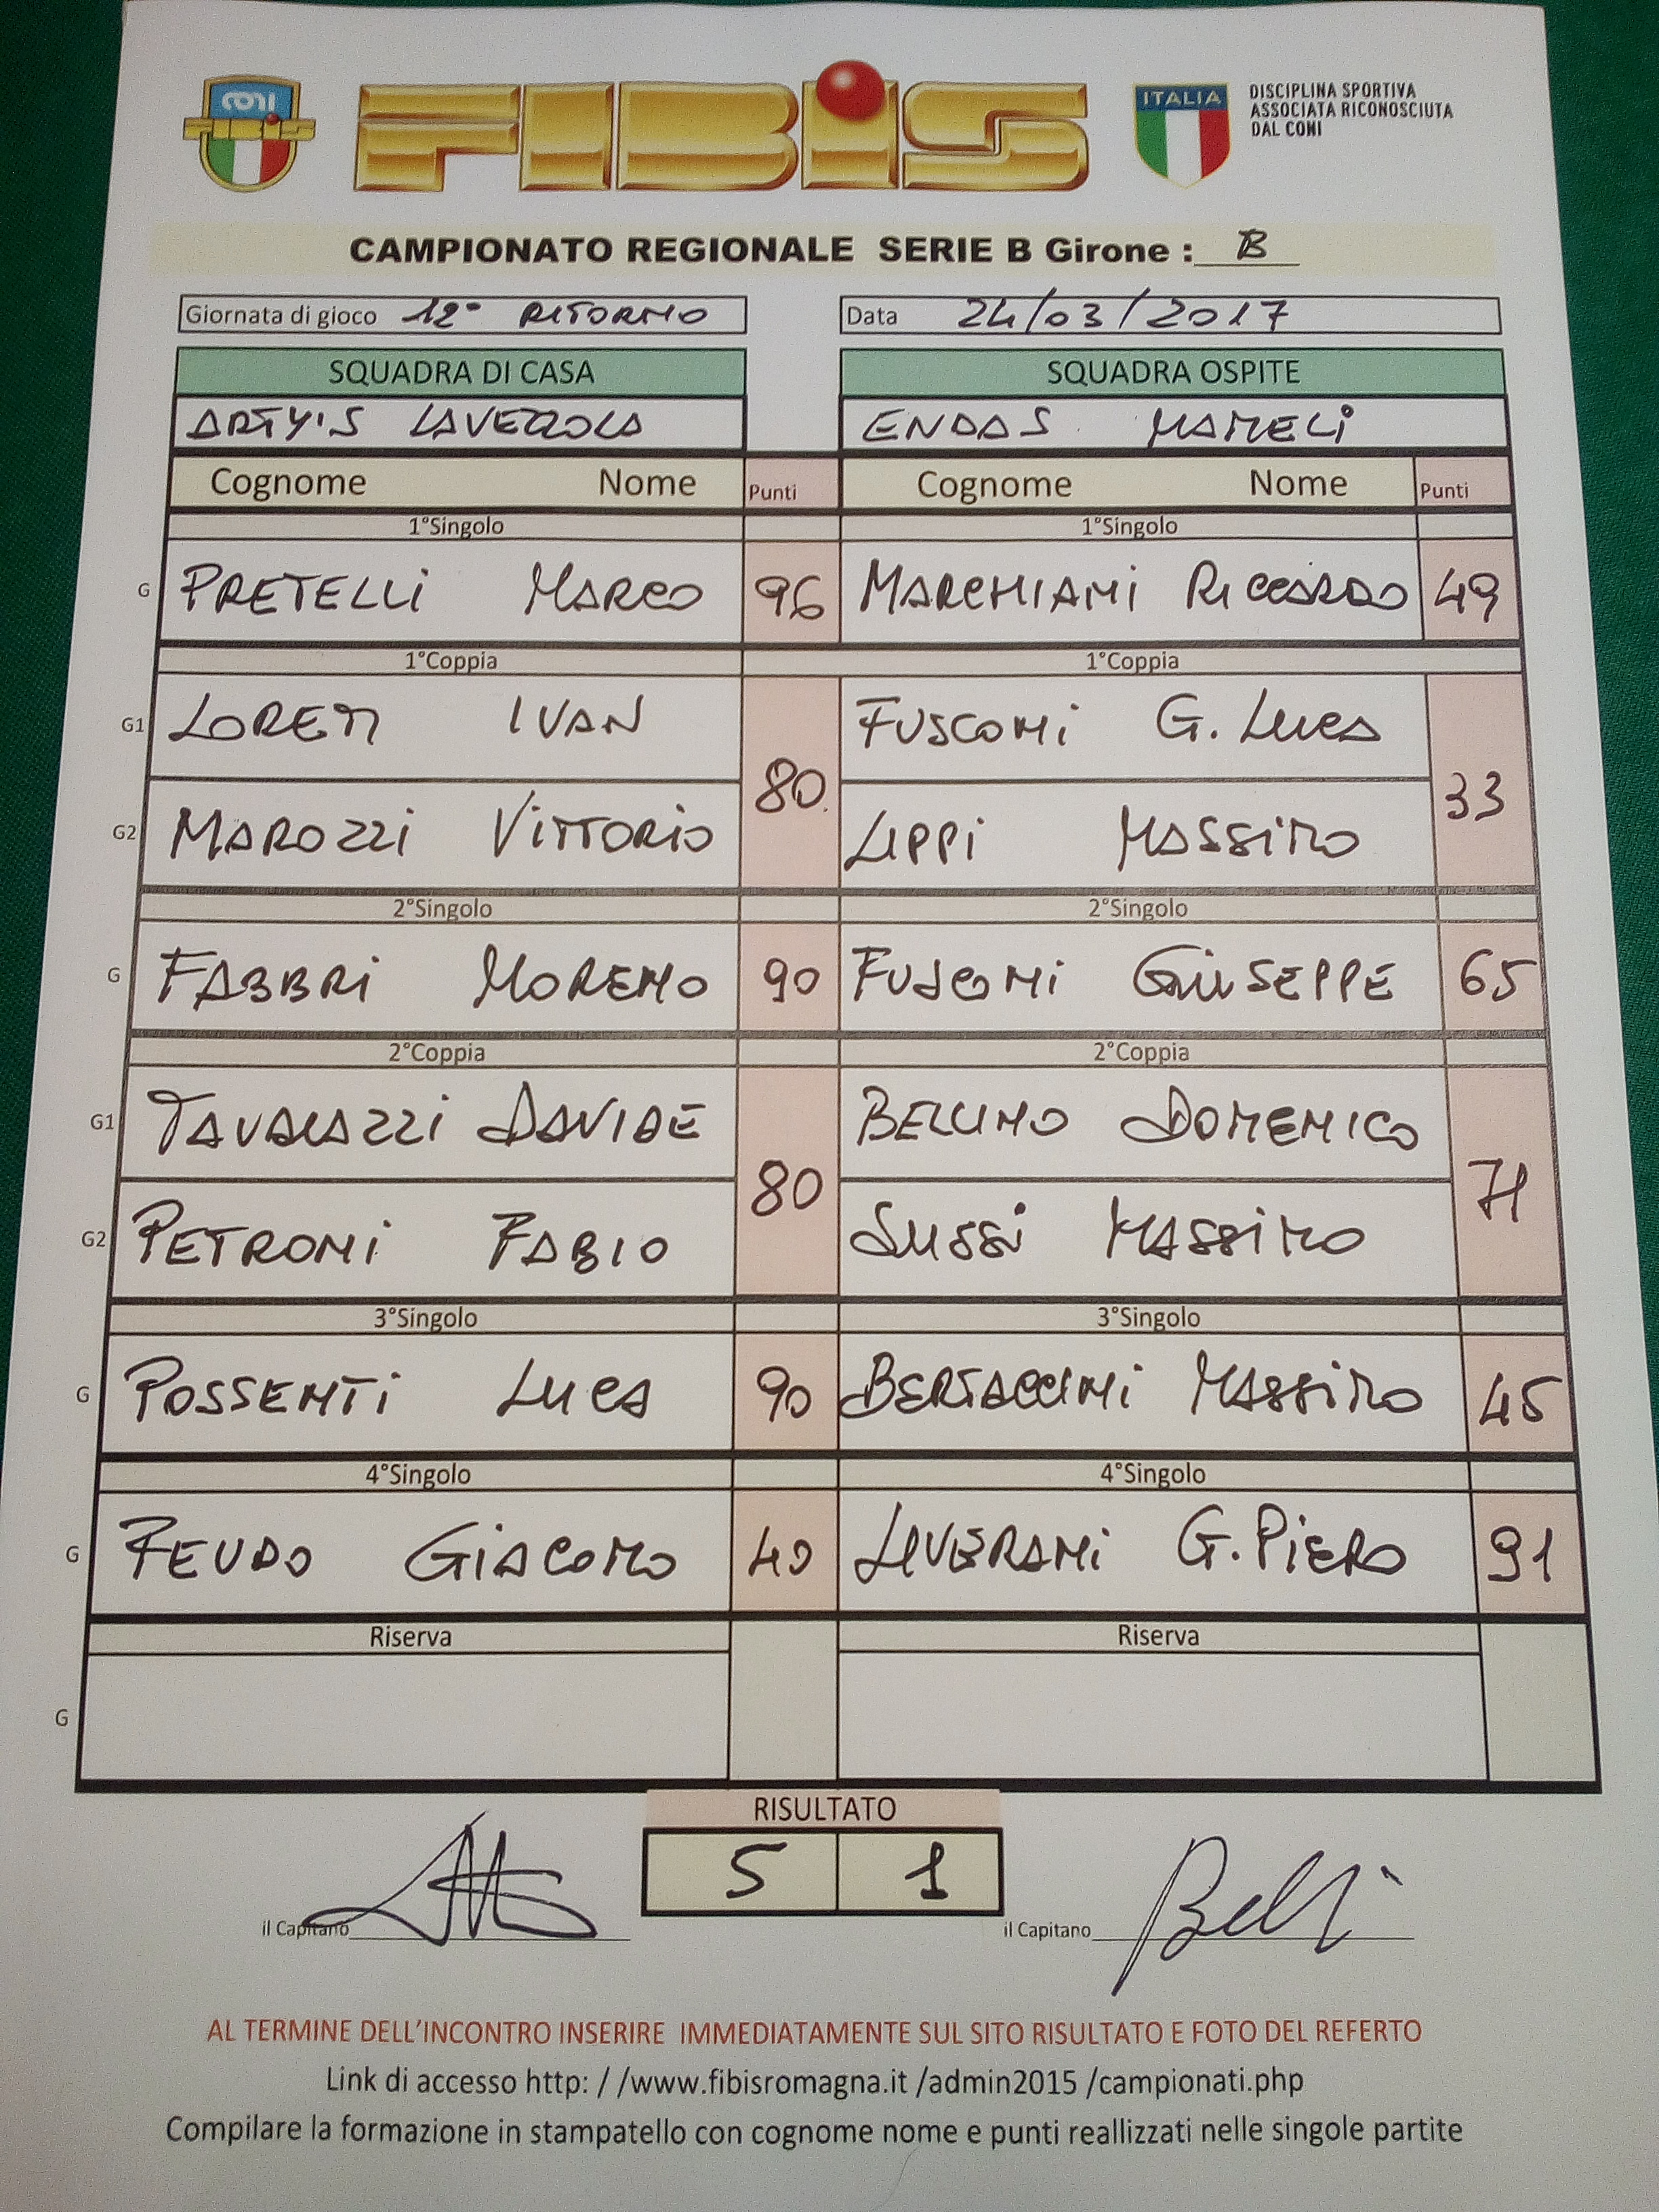 CONI
FIBIS
FIBIS
ITALIA
DISCIPLINA SPORTIVA
ASSOCIATA RICONOSCIUTA
DAL CONI
CAMPIONATO REGIONALE SERIE B Girone : B
Giornata di gioco 12° RITORNO
Data 24/03/2017
SQUADRA DI CASA SQUADRA OSPITE
ARTY'S LAVEZZOLA ENDAS MAMELI
Cognome Nome Punti Cognome Nome Punti
1°Singolo 1°Singolo
G PRETELLI MARCO 96 MARCHIANI RICCARDO 49
1°Coppia 1°Coppia
G1 LORETI IVAN 80 FUSCONI G. LUCA 33
G2 MAROZZI VITTORIO LIPPI MASSIMO
2°Singolo 2°Singolo
G FABBRI MORENO 90 FUSCONI GIUSEPPE 65
2°Coppia 2°Coppia
G1 TAVALAZZI DAVIDE 80 BELLINO DOMENICO 71
G2 PETRONI FABIO SUSSI MASSIMO
3°Singolo 3°Singolo
G POSSENTI LUCA 90 BERTACCINI MASSIMO 45
4°Singolo 4°Singolo
G FEUDO GIACOMO 40 LIVERANI G. PIERO 91
Riserva Riserva
G
RISULTATO
5 1
il Capitano il Capitano
AL TERMINE DELL'INCONTRO INSERIRE IMMEDIATAMENTE SUL SITO RISULTATO E FOTO DEL REFERTO
Link di accesso http: / /www.fibisromagna.it /admin2015 /campionati.php
Compilare la formazione in stampatello con cognome nome e punti reallizzati nelle singole partite